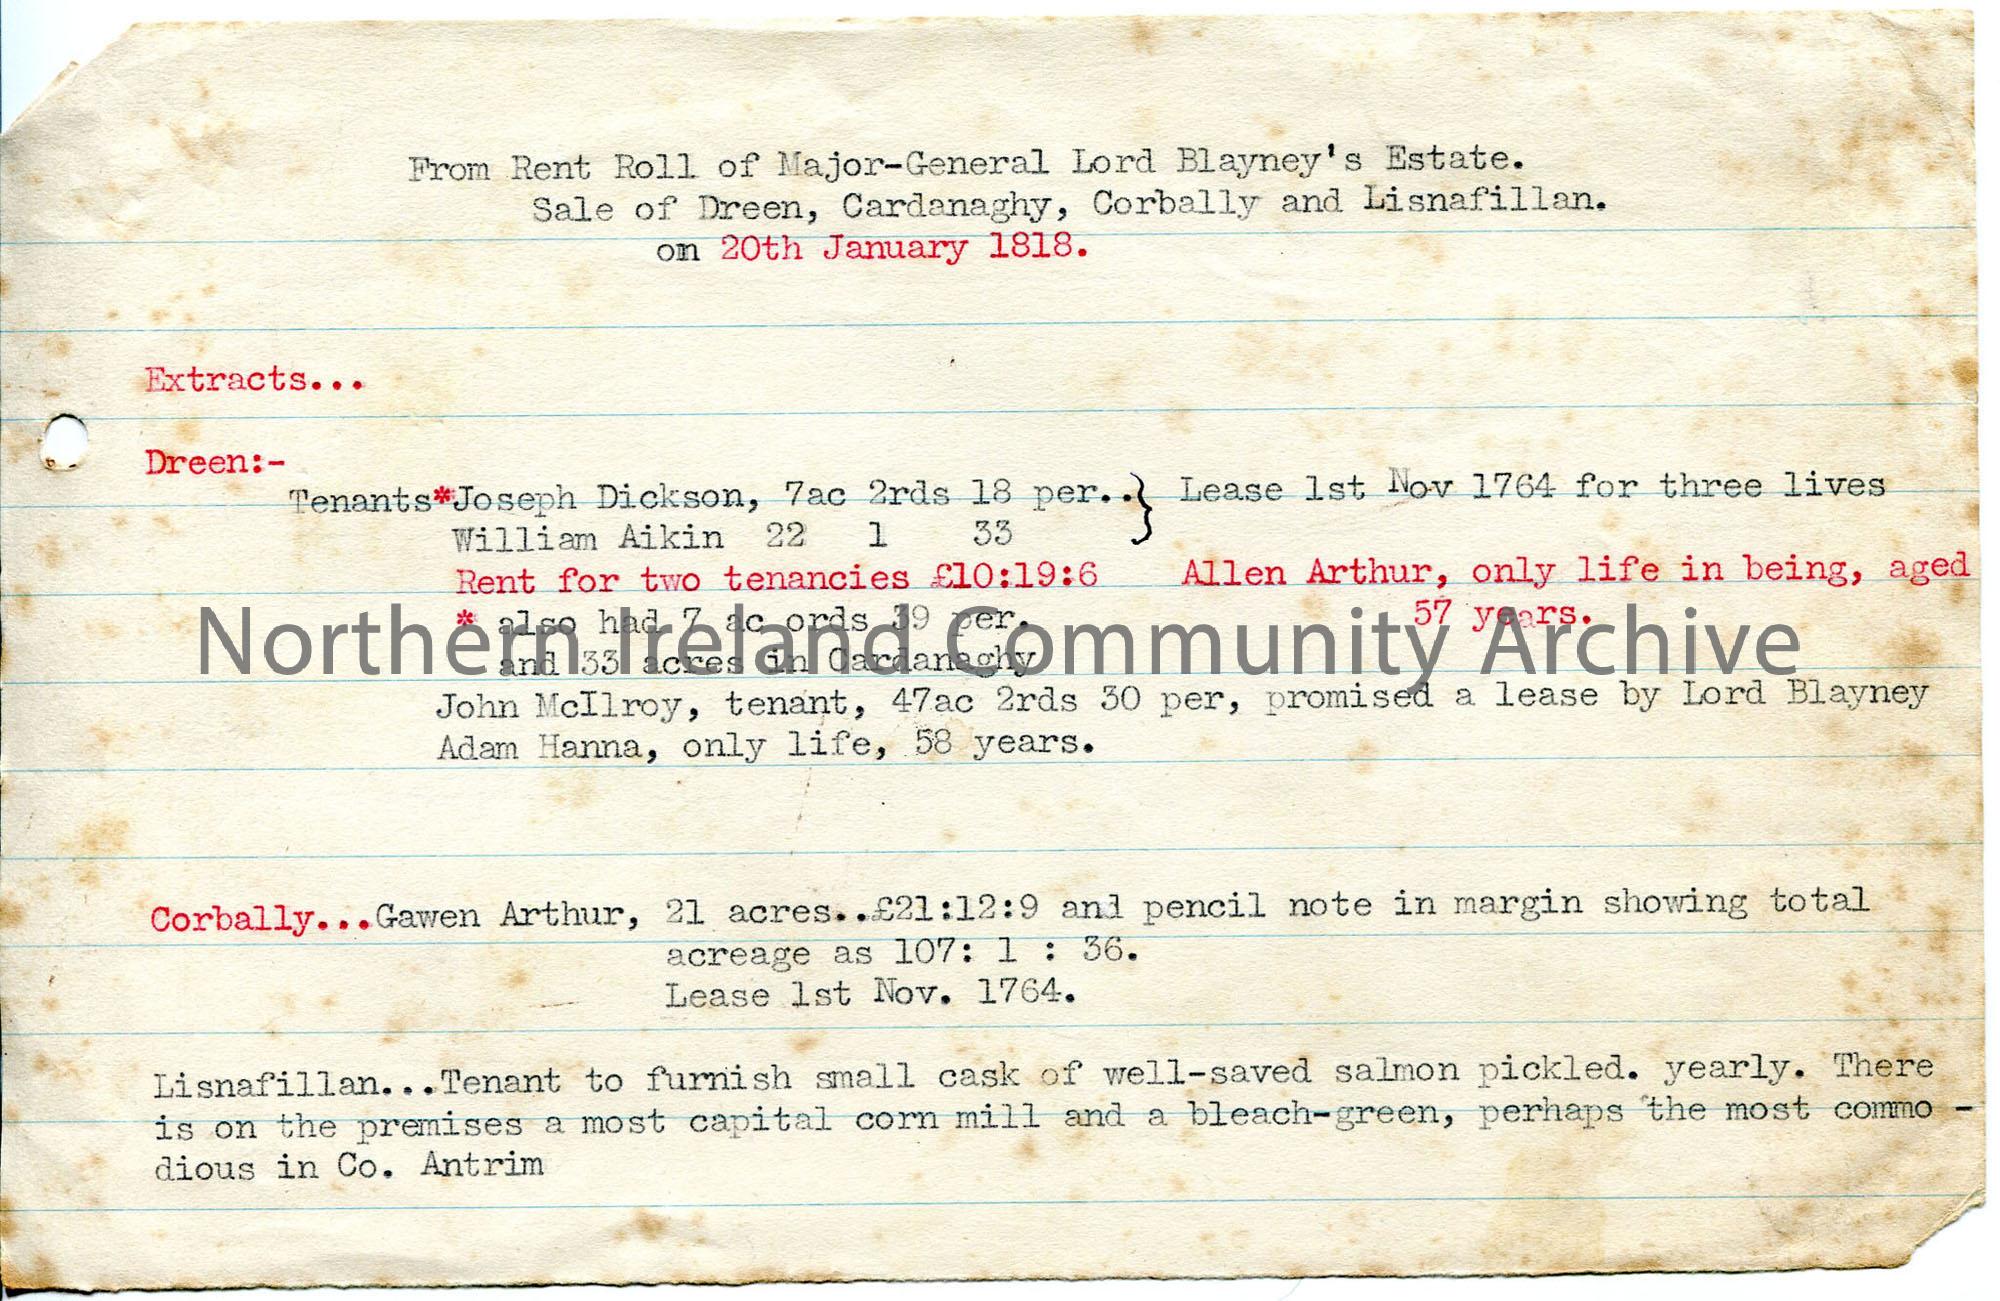 From Rent Roll of Major-General Lord Blayney's Estate.
Sale of Dreen, Cardanaghy, Corbally and Lisnafillan.
on 20th January 1818.
Extracts...
Dreen:-
Tenants*Joseph Dickson, 7ac 2rds 18 per..} Lease 1st Nov 1764 for three lives
William Aikin 22 1 33
Rent for two tenancies £10:19:6 Allen Arthur, only life in being, aged
* also had 7 ac ords 39 per. 57 years.
and 33 acres in Cardanaghy
Northern Ireland Community Archive
John McIlroy, tenant, 47ac 2rds 30 per, promised a lease by Lord Blayney
Adam Hanna, only life, 58 years.
Corbally...Gawen Arthur, 21 acres..£21:12:9 and pencil note in margin showing total
acreage as 107: 1 : 36.
Lease 1st Nov. 1764.
Lisnafillan...Tenant to furnish small cask of well-saved salmon pickled. yearly. There
is on the premises a most capital corn mill and a bleach-green, perhaps the most commo -
dious in Co. Antrim